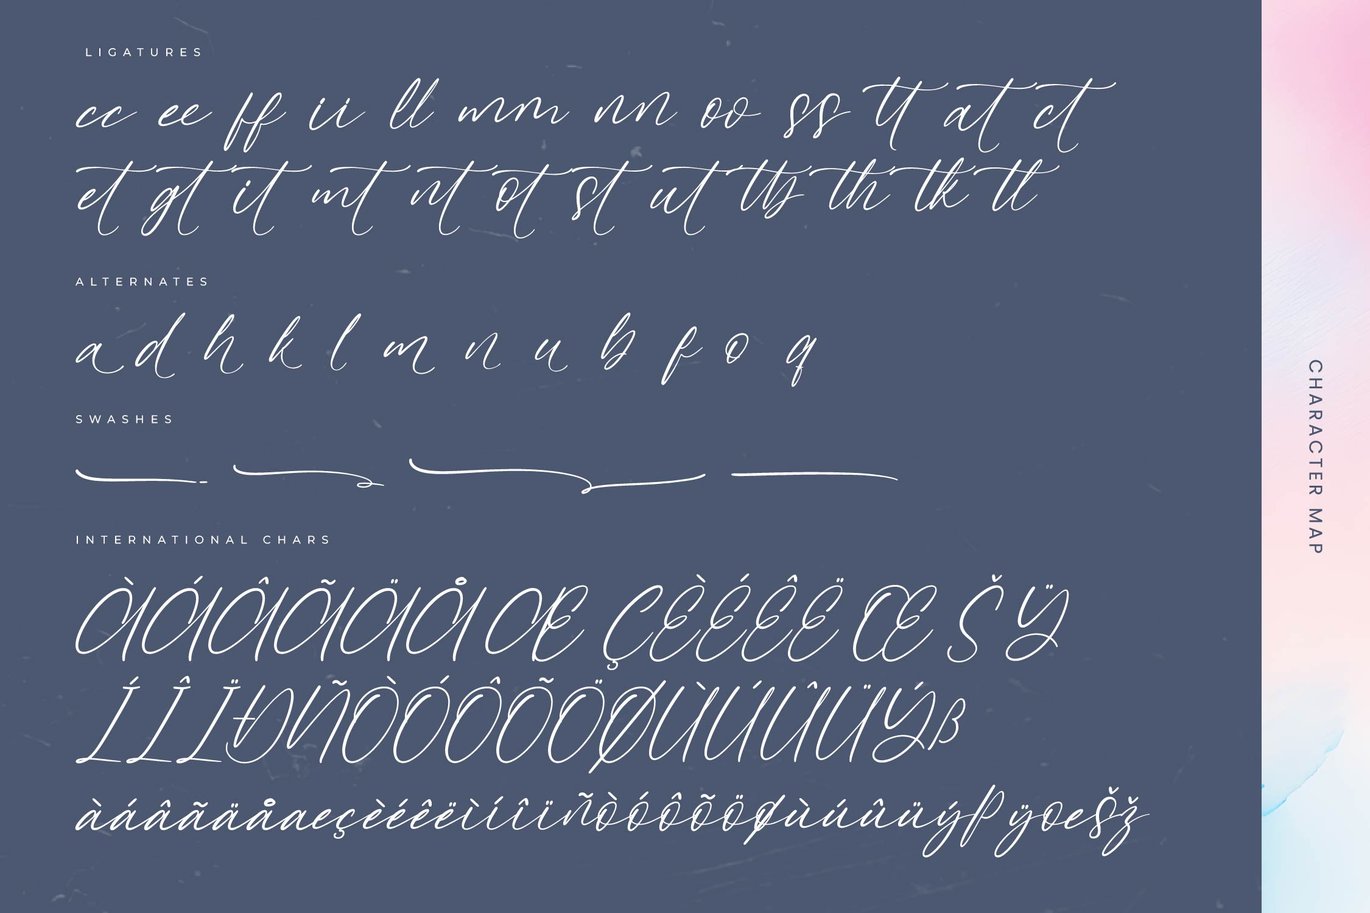 LIGATURES
cc ee ff ii ll mm nn oo ss tt at ct
et gt it mt nt ot st ut tb th tk tl
ALTERNATES
a d h k l m n u b f o q
SWASHES
INTERNATIONAL CHARS
ÀÁÂÃÄÅ Æ ÇÈÉÊË Œ Š Ÿ
ÍÎÏÐÑÒÓÔÕÖØÙÚÛÜÝß
àáâãäåæçèéêëìíîïñòóôõöøùúûüýþÿœšž
CHARACTER MAP